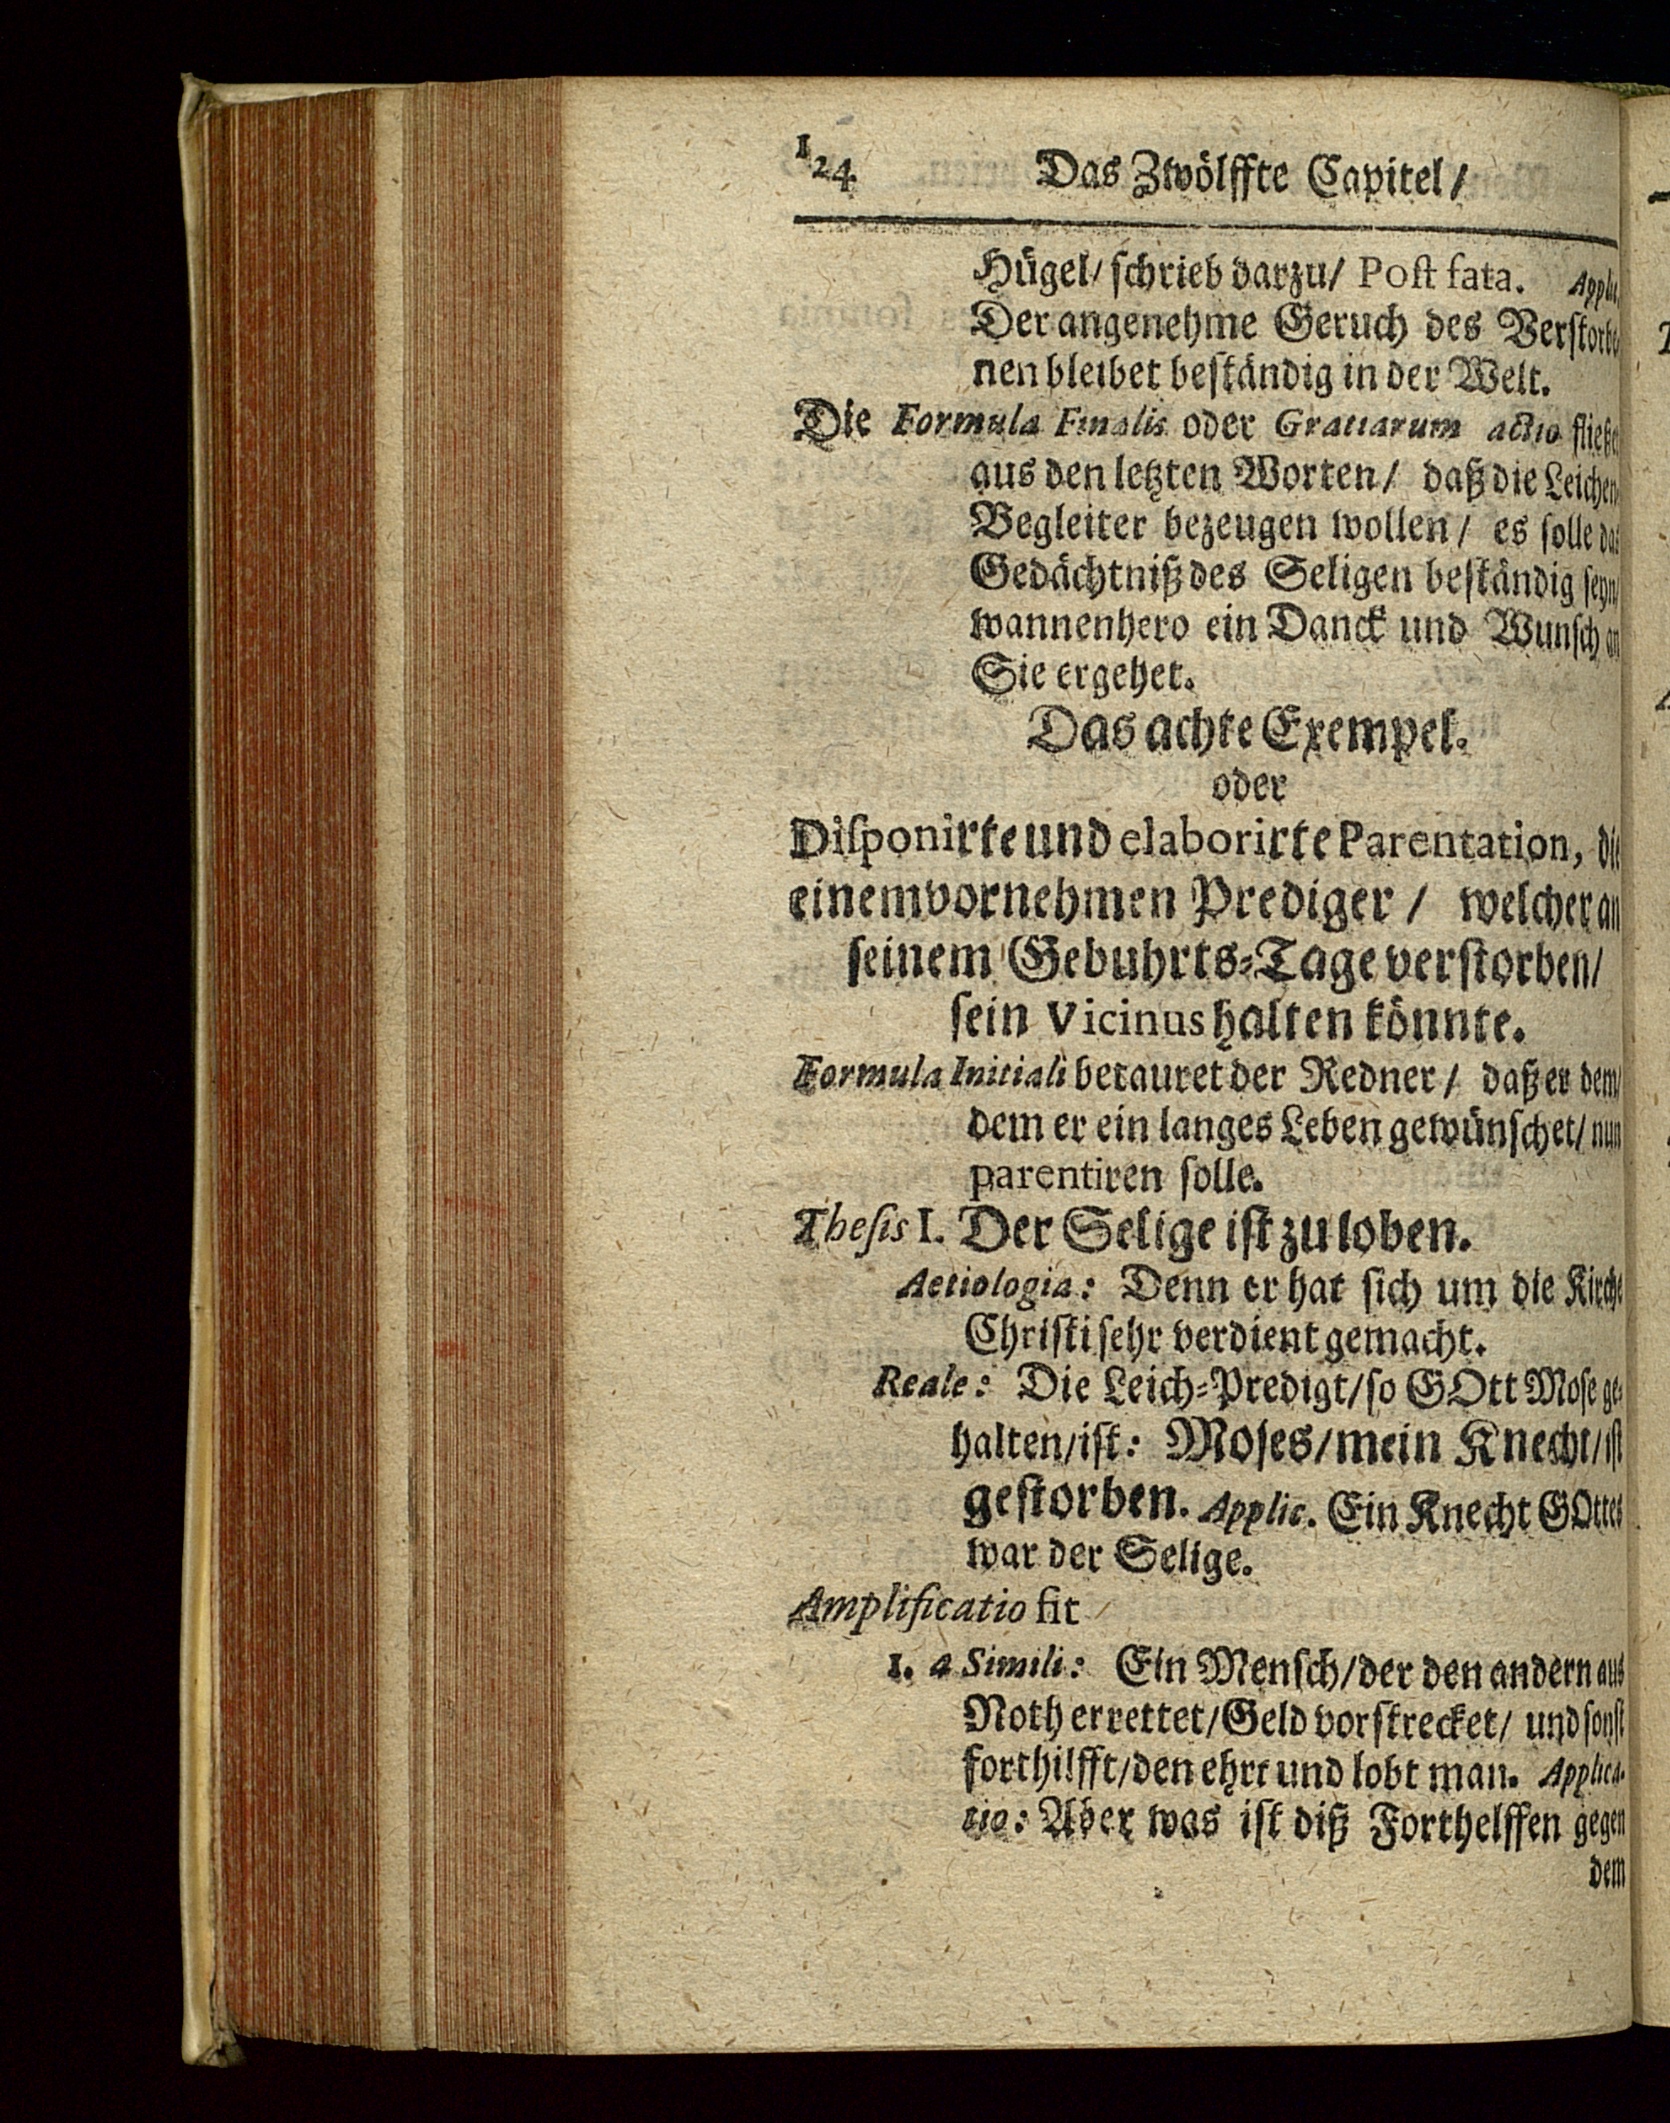 124 Das Zwölffte Capitel /
Hügel / schrieb darzu / Post fata. Applic.
Der angenehme Geruch des Verstorbe-
nen bleibet beständig in der Welt.
Die Formula Finalis oder Gratiarum actio fließet
aus den letzten Worten / daß die Leichen-
Begleiter bezeugen wollen / es solle das
Gedächtniß des Seligen beständig seyn /
wannenhero ein Danck und Wunsch an
Sie ergehet.
Das achte Exempel.
oder
Disponirte und elaborirte Parentation, die
einem vornehmen Prediger / welcher an
seinem Gebuhrts-Tage verstorben /
sein Vicinus halten könnte.
Formula Initiali betauret der Redner / daß er dem /
dem er ein langes Leben gewünschet / nun
parentiren solle.
Thesis I. Der Selige ist zu loben.
Aetiologia: Denn er hat sich um die Kirche
Christi sehr verdient gemacht.
Reale: Die Leich-Predigt / so GOtt Mose ge-
halten / ist: Moses / mein Knecht / ist
gestorben. Applic. Ein Knecht GOttes
war der Selige.
Amplificatio fit
1. a Simili: Ein Mensch / der den andern aus
Noth errettet / Geld vorstrecket / und sonst
forthilfft / den ehrt und lobt man. Applica-
tio: Aber was ist diß Forthelffen gegen
dem